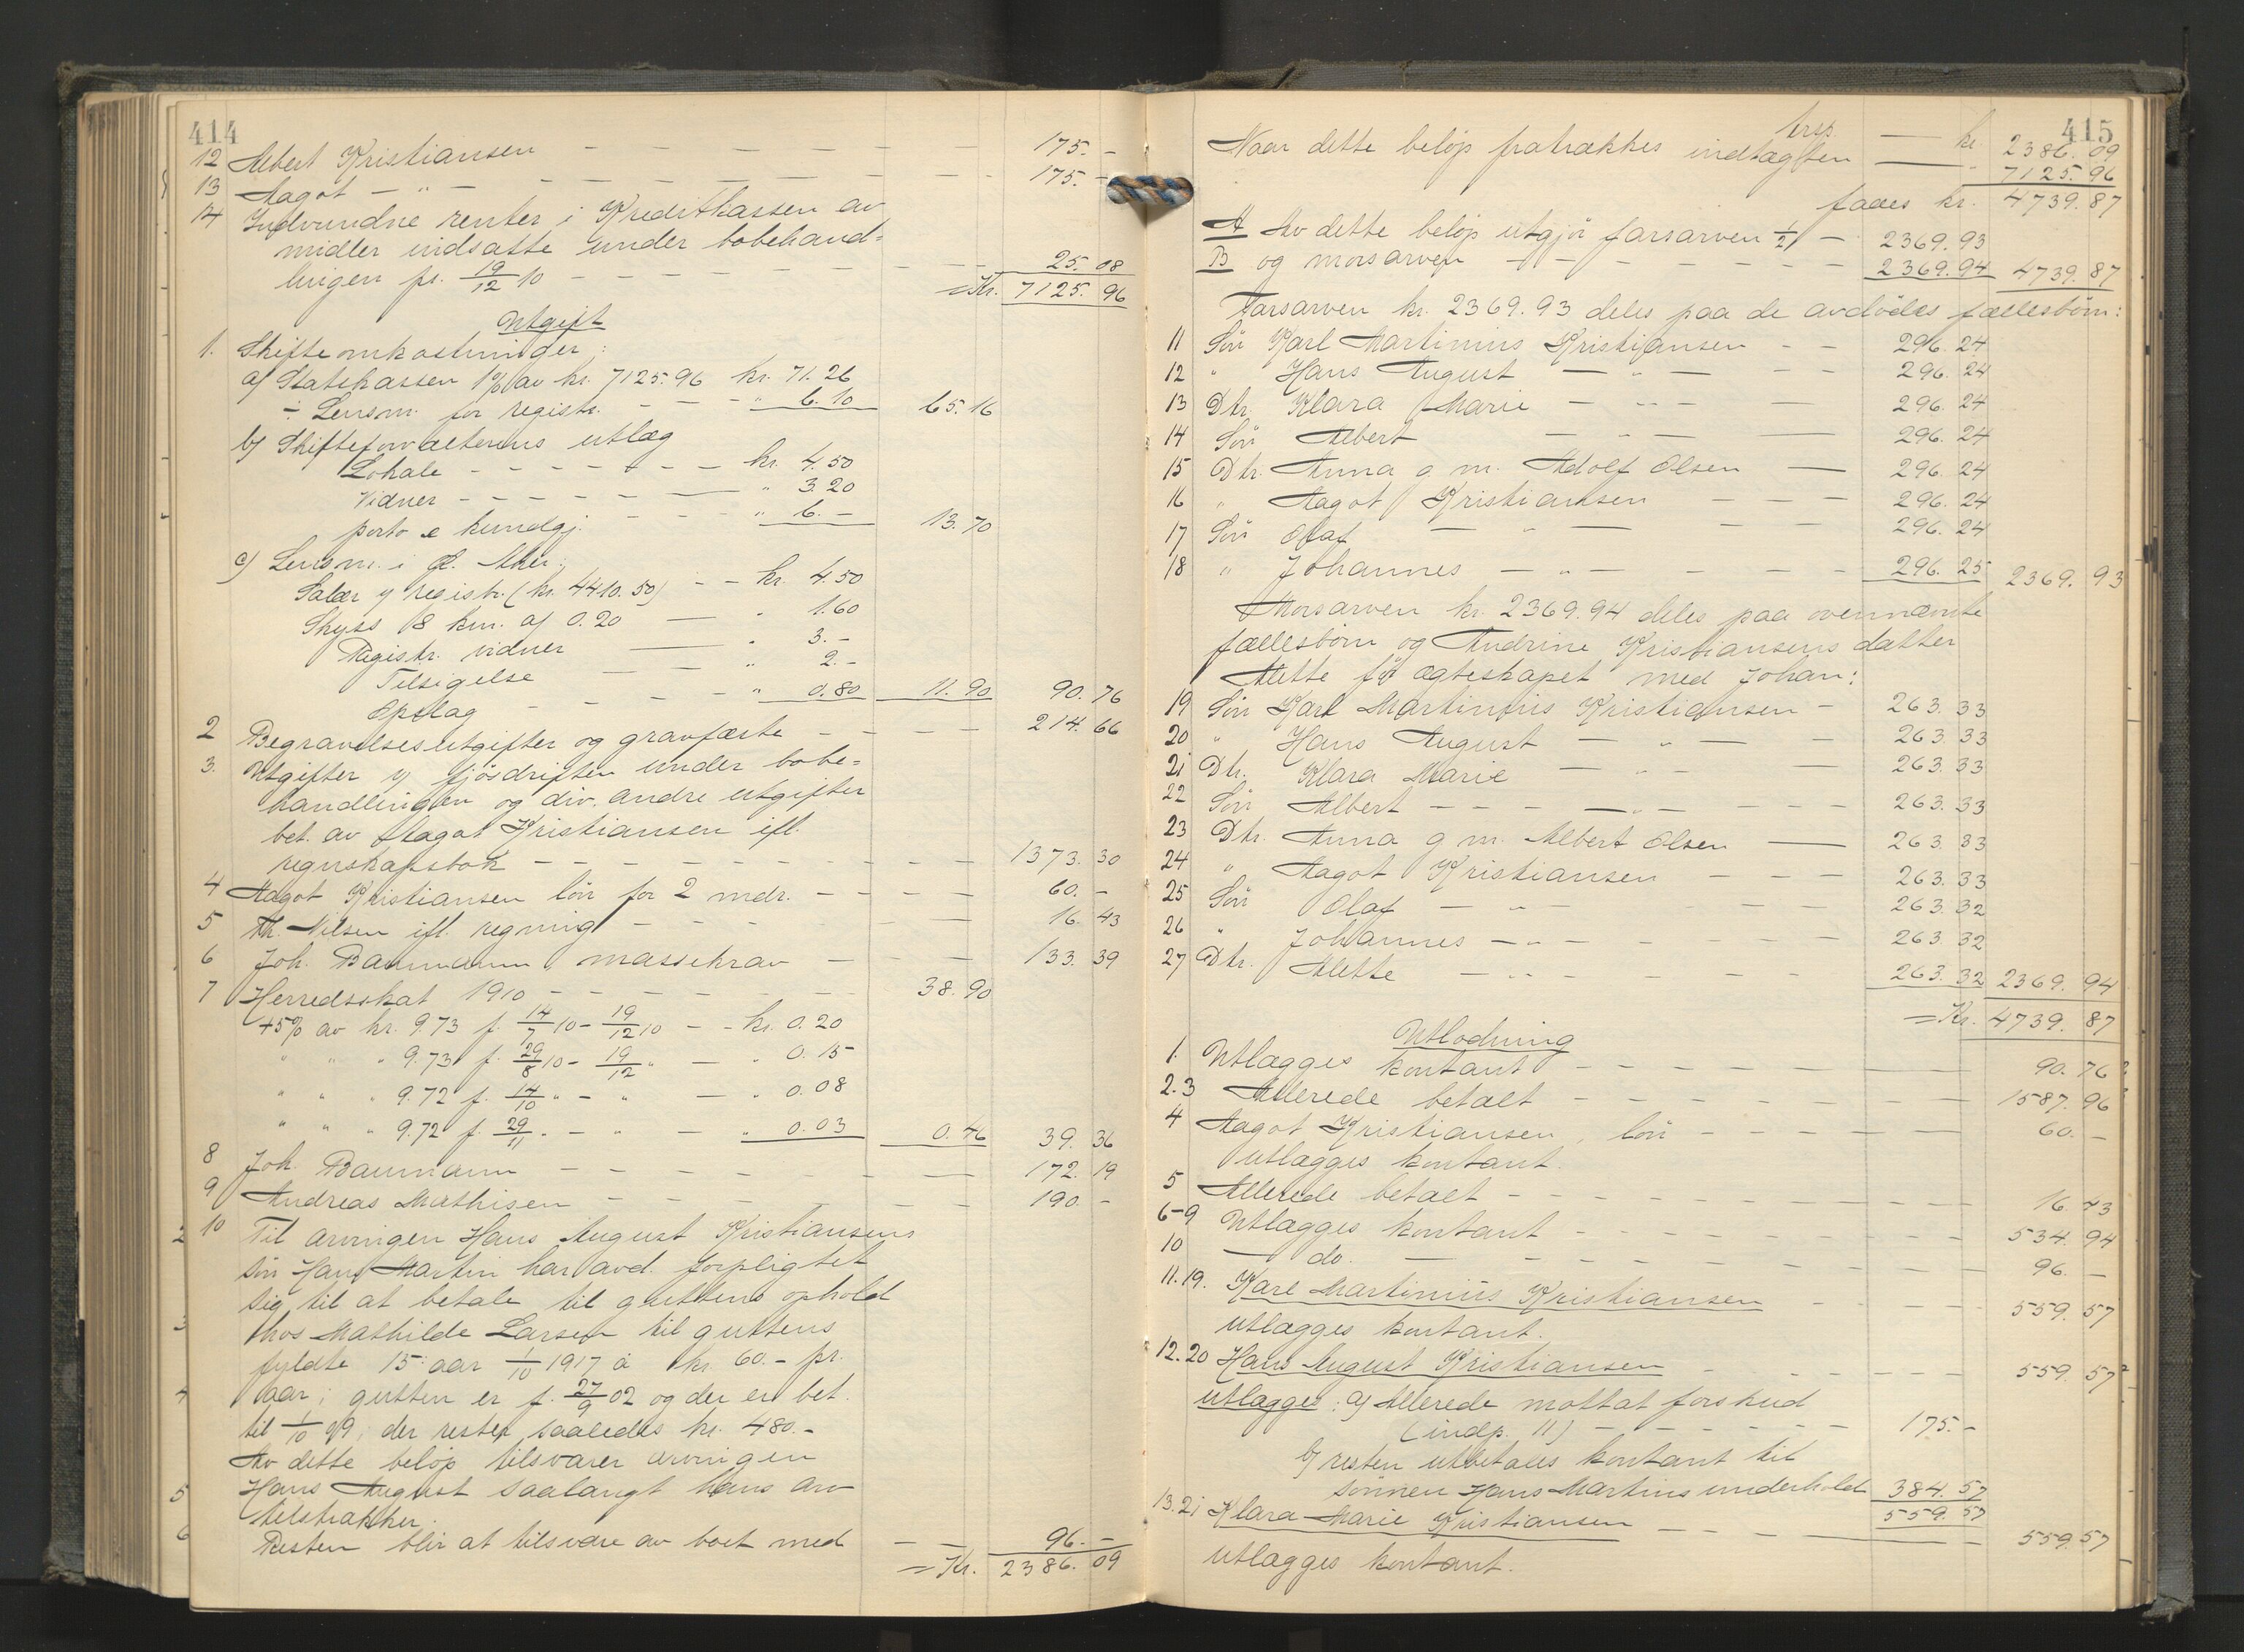 414
12 Albert Kristiansen — — — — — 175. -
13 Aagot — " — — — — — 175. -
14 Indvundne renter i Kreditkassen av
midler indsatte under bobehand=
lingen pr. 19/12 10 — — — — 25. 08
= Kr. 7125. 96
Utgift
1. Skifteomkostninger:
a) Statskassen 1% av kr. 7125.96 kr. 71.26
÷ Lensm. for registr. - - - " 6.10 65.16
b) Skifteforvalterens utlæg
Lokale - - - - - - kr. 4.50
Vidner - - - - - " 3 20
porto & kundgj. - - - " 6. - 13.70
c) Lensm. i Ø. Aker:
Salær v registr. (kr. 4410.50) - - kr. 4.50
Skyss 18 km. a/ 0.20 — " 1.60
Registr. vidner — " 3. -
Tilsigelse — " 2. -
Opslag - - - - " 0.80 11.90 90. 76
2 Begravelsesutgifter og gravfæste - - - - 214. 66
3. Utgifter v fjøsdriften under bobe=
handlingen og div. andre utgifter
bet. av Aagot Kristiansen ifl.
regnskapsbok - - - - - - 1373. 30
4 Aagot Kristiansen løn for 2 mdr. - - - - 60. -
5 Th. Nilsen ifl. regning - - - - 16. 43
6 Joh. Baumann, massekrav - - - 133. 39
7 Herredsskat 1910 - - - - - 38.90
+5% av kr. 9.73 f. 14/7 10 - 19/12 10 - - kr. 0.20
" " " 9.73 f. 29/8 10 - 19/12 " — " 0.15
" " " 9.72 f. 14/10 " - " — " 0.08
" " " 9.72 f. 29/11 " - " — " 0.03 0.46 39. 36
8 Joh. Baumann - - - - - 172. 19
9 Andreas Mathisen - - - - - 190. -
10 Til arvingen Hans August Kristiansens
søn Hans Martin har avd. forpligtet
sig til at betale til guttens ophold
hos Mathilde Larsen til guttens
fyldte 15 aar 1/10 1917 a kr. 60. - pr.
aar; gutten er f. 27/9 02 og der er bet.
til 1/10 09; der rester saaledes kr. 480.-
Av dette beløp tilsvarer arvingen
Hans August saalangt hans arv
tilstrækker.
Resten blir at tilsvare av boet med - - 96. -
= Kr. 2386. 09
415
trsp. — kr 2386. 09
Naar dette beløp fratrækkes indtægten — " 7125. 96
faaes kr. 4739. 87
A Av dette beløp utgjør farsarven 1/2 - 2369. 93
B og morsarven - - - - - 2369. 94 4739. 87
Farsarven kr. 2369.93 deles paa de avdødes fællesbørn:
11 Søn Karl Martinius Kristiansen - - 296. 24
12 " Hans August — " — - - 296. 24
13 Dtr. Klara Marie — " — — 296. 24
14 Søn Albert — " — — 296. 24
15 Dtr. Anna g. m. Adolf Olsen — 296. 24
16 " Aagot Kristiansen - - - 296. 24
17 Søn Olaf — " — - - 296. 24
18 " Johannes — " — - - - 296. 25 2369. 93
Morsarven kr. 2369.94 deles paa ovennævnte
fællesbørn og Andrine Kristiansens datter
Alette før ægteskapet med Johan:
19 Søn Karl Martinius Kristiansen - 263. 33
20 " Hans August — " — - 263. 33
21 Dtr. Klara Marie — " — 263. 33
22 Søn Albert - - - — " — - - - 263. 33
23 Dtr. Anna g. m. Albert Olsen — 263. 33
24 " Aagot Kristiansen - - - 263. 33
25 Søn Olaf — " — - - - 263. 32
26 " Johannes — " — - - - 263. 32
27 Dtr. Alette — " — - - - 263. 32 2369. 94
= Kr. 4739. 87
Utlodning
1. Utlægges kontant - - - - - 90. 76
2.3 Allerede betalt - - - - - 1587. 96
4 Aagot Kristiansen, løn - - - - - 60. -
utlægges kontant.
5 Allerede betalt - - - - - 16. 43
6-9 Utlægges kontant - - - - - 534. 94
10 — do. — - - - - - 96. -
11.19. Karl Martinius Kristiansen - - - - 559. 57
utlægges kontant.
12.20 Hans August Kristiansen - - - - 559. 57
utlægges: a) Allerede mottat forskud
(indp. 11) - - - - - 175. -
b) resten utbetales kontant til
sønnen Hans Martins underhold 384. 57
559. 57
13.21 Klara Marie Kristiansen - - - - 559. 57
utlægges kontant.